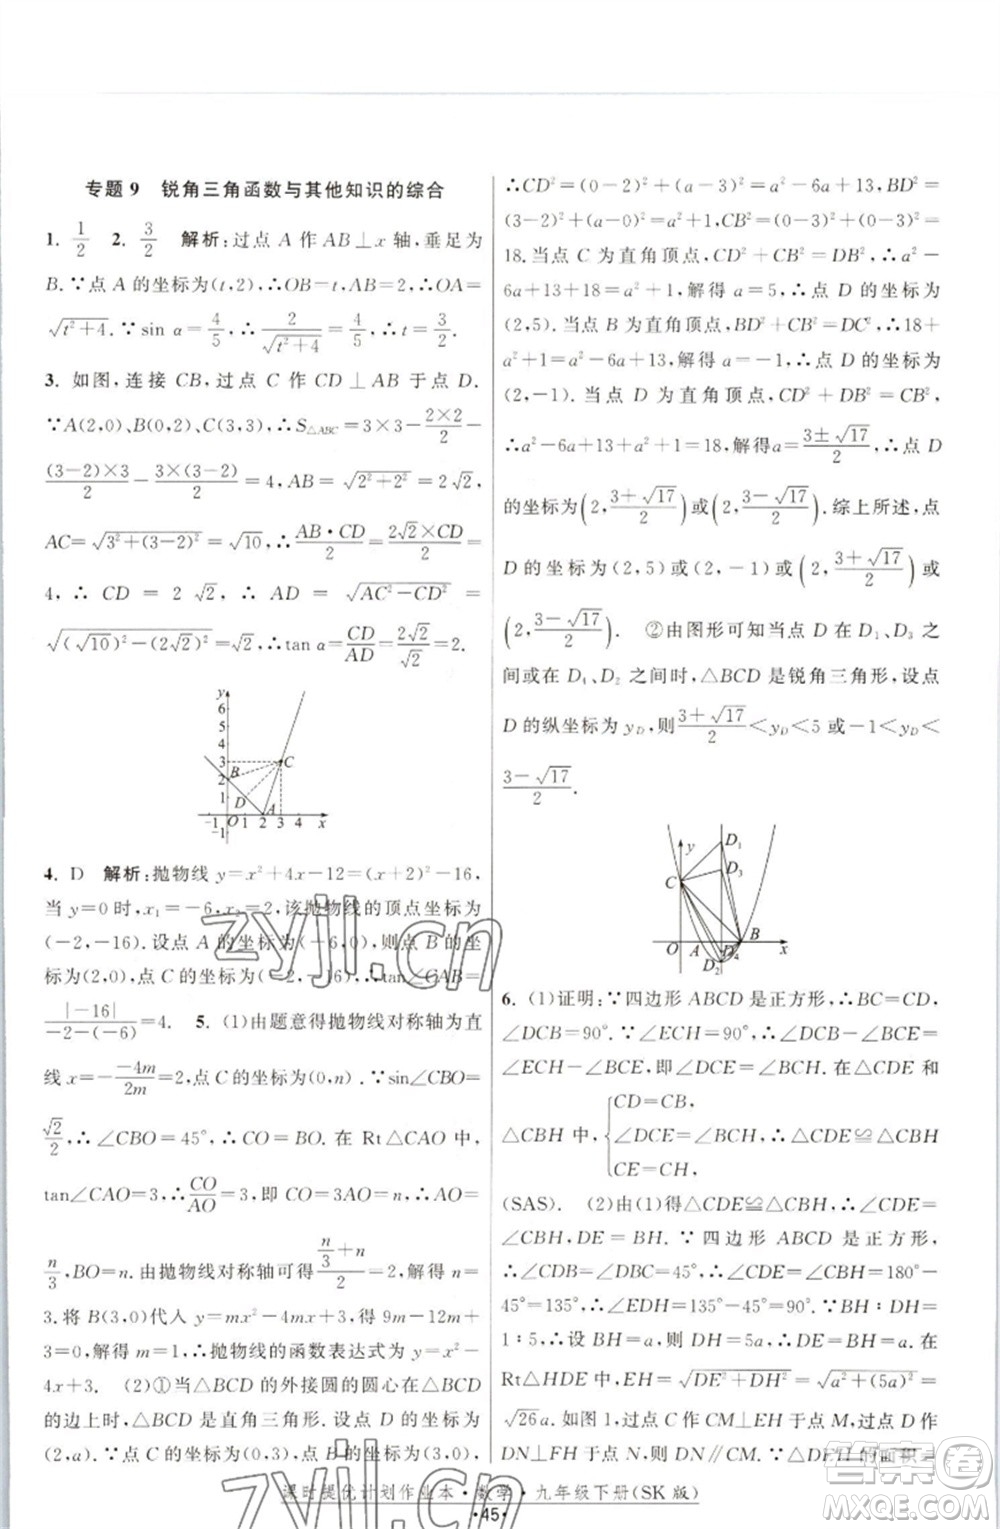 专题 9　锐角三角函数与其他知识的综合
1. 1/2　2. 3/2　解析:过点 A 作 AB⊥x 轴,垂足为
B. ∵点 A 的坐标为(t,2),∴OB=t,AB=2,∴OA=
√(t²+4). ∵sin α=4/5,∴2/√(t²+4)=4/5,∴t=3/2.
3. 如图,连接 CB,过点 C 作 CD⊥AB 于点 D.
∵A(2,0)、B(0,2)、C(3,3),∴S△ABC=3×3−(2×2)/2−
((3−2)×3)/2−(3×(3−2))/2=4,∵AB=√(2²+2²)=2√2,
AC=√(3²+(3−2)²)=√10,∴(AB·CD)/2=(2√2×CD)/2=
4,∴CD=2√2,∴AD=√(AC²−CD²)=
√((√10)²−(2√2)²)=√2,∴tan α=CD/AD=2√2/√2=2.
y
6
5
4
3
2
1
B
C
D
A
−1 O 1 2 3 4 x
−1
4. D　解析:抛物线 y=x²+4x−12=(x+2)²−16,
当 y=0 时,x₁=−6,x₂=2,该抛物线的顶点坐标为
(−2,−16). 设点 A 的坐标为(−6,0),则点 B 的坐标
为(2,0),点 C 的坐标为(−2,−16),∴tan∠CAB=
|−16|/(−2−(−6))=4.　5. (1)由题意得抛物线对称轴为直
线 x=−(−4m)/2m=2,点 C 的坐标为(0,n). ∵sin∠CBO=
√2/2,∴∠CBO=45°,∴CO=BO. 在 Rt△CAO 中,
tan∠CAO=3,∴CO/AO=3,即 CO=3AO=n,∴AO=
n/3,BO=n. 由抛物线对称轴可得(n/3+n)/2=2,解得 n=
3. 将 B(3,0)代入 y=mx²−4mx+3,得 9m−12m+
3=0,解得 m=1,∴抛物线的函数表达式为 y=x²−
4x+3.　(2)①当△BCD 的外接圆的圆心在△BCD
的边上时,△BCD 是直角三角形. 设点 D 的坐标为
(2,a). ∵点 C 的坐标为(0,3),点 B 的坐标为(3,0),
∴CD²=(0−2)²+(3−a)²=a²−6a+13,BD²=
(3−2)²+(0−a)²=a²+1,CB²=(0−3)²+(3−0)²=
18. 当点 C 为直角顶点时,CD²+CB²=BD²,∴a²−
6a+13+18=a²+1,解得 a=5,∴点 D 的坐标为
(2,5). 当点 B 为直角顶点时,BD²+CB²=DC²,∴18+
a²+1=a²−6a+13,解得 a=−1,∴点 D 的坐标为
(2,−1). 当点 D 为直角顶点时,CD²+DB²=CB²,
∴a²−6a+13+a²+1=18,解得a=(3±√17)/2,∴点 D
的坐标为(2,(3+√17)/2)或(2,(3−√17)/2). 综上所述,点
D 的坐标为(2,5)或(2,−1)或(2,(3+√17)/2)或
(2,(3−√17)/2).　②由图形可知当点 D 在 D₁、D₃ 之
间或在 D₄、D₂ 之间时,△BCD 是锐角三角形,设点
D 的纵坐标为 y_D,则(3+√17)/2<y_D<5 或−1<y_D<
(3−√17)/2.
y
D₁
D₃
C
B
O A x
D₂ D₄
6. (1)证明:∵四边形 ABCD 是正方形,∴BC=CD,
∠DCB=90°. ∵∠ECH=90°,∴∠DCB−∠BCE=
∠ECH−∠BCE,即∠DCE=∠BCH. 在△CDE 和
△CBH 中,{CD=CB,
∠DCE=∠BCH,∴△CDE≌△CBH
CE=CH,
(SAS).　(2)由(1)得△CDE≌△CBH,∴∠CDE=
∠CBH,DE=BH. ∵四边形 ABCD 是正方形,
∴∠CDB=∠DBC=45°,∴∠CDE=∠CBH=180°−
45°=135°,∴∠EDH=135°−45°=90°. ∵BH∶DH=
1∶5,∴设 BH=a,则 DH=5a,∴DE=BH=a. 在
Rt△HDE 中,EH=√(DE²+DH²)=√(a²+(5a)²)=
√26a. 如图,过点 C 作 CM⊥EH 于点 M,过点 D 作
DN⊥FH 于点 N,则 DN∥CM. ∵△DEH 的面积=
课时提优计划作业本·数学·九年级下册(SK 版)
·45·
zyjl.cn
zyjl.cn
答案卷
MXQE.COM